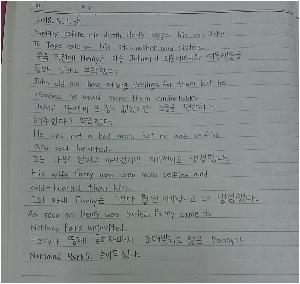 2018. 5. 1. 화
Shortly before his death, Henry begged his son John
to take care of his stepmother and sisters.
죽음 직전에 Henry는 아들 John에게 의붓어머니와 여동생들을
돌봐 달라고 부탁했다.
John did not have strong feelings for them, but he
promised he would make them comfortable.
John은
약속했다.
He was not a bad man, but he was selfish
and cold hearted.
그는 나쁜 남자는 아니었지만 이기적이고 냉정했다.
His wife Fanny was even more selfish and
cold-hearted than him.
그의 아내 Fanny는 그보다 훨씬 이기적이고 더 냉정했다.
As soon as Henry was buried, Fanny came to
Norland Park uninvited.
Henry가 초대받지도 않은 Fanny가
Norland Park로